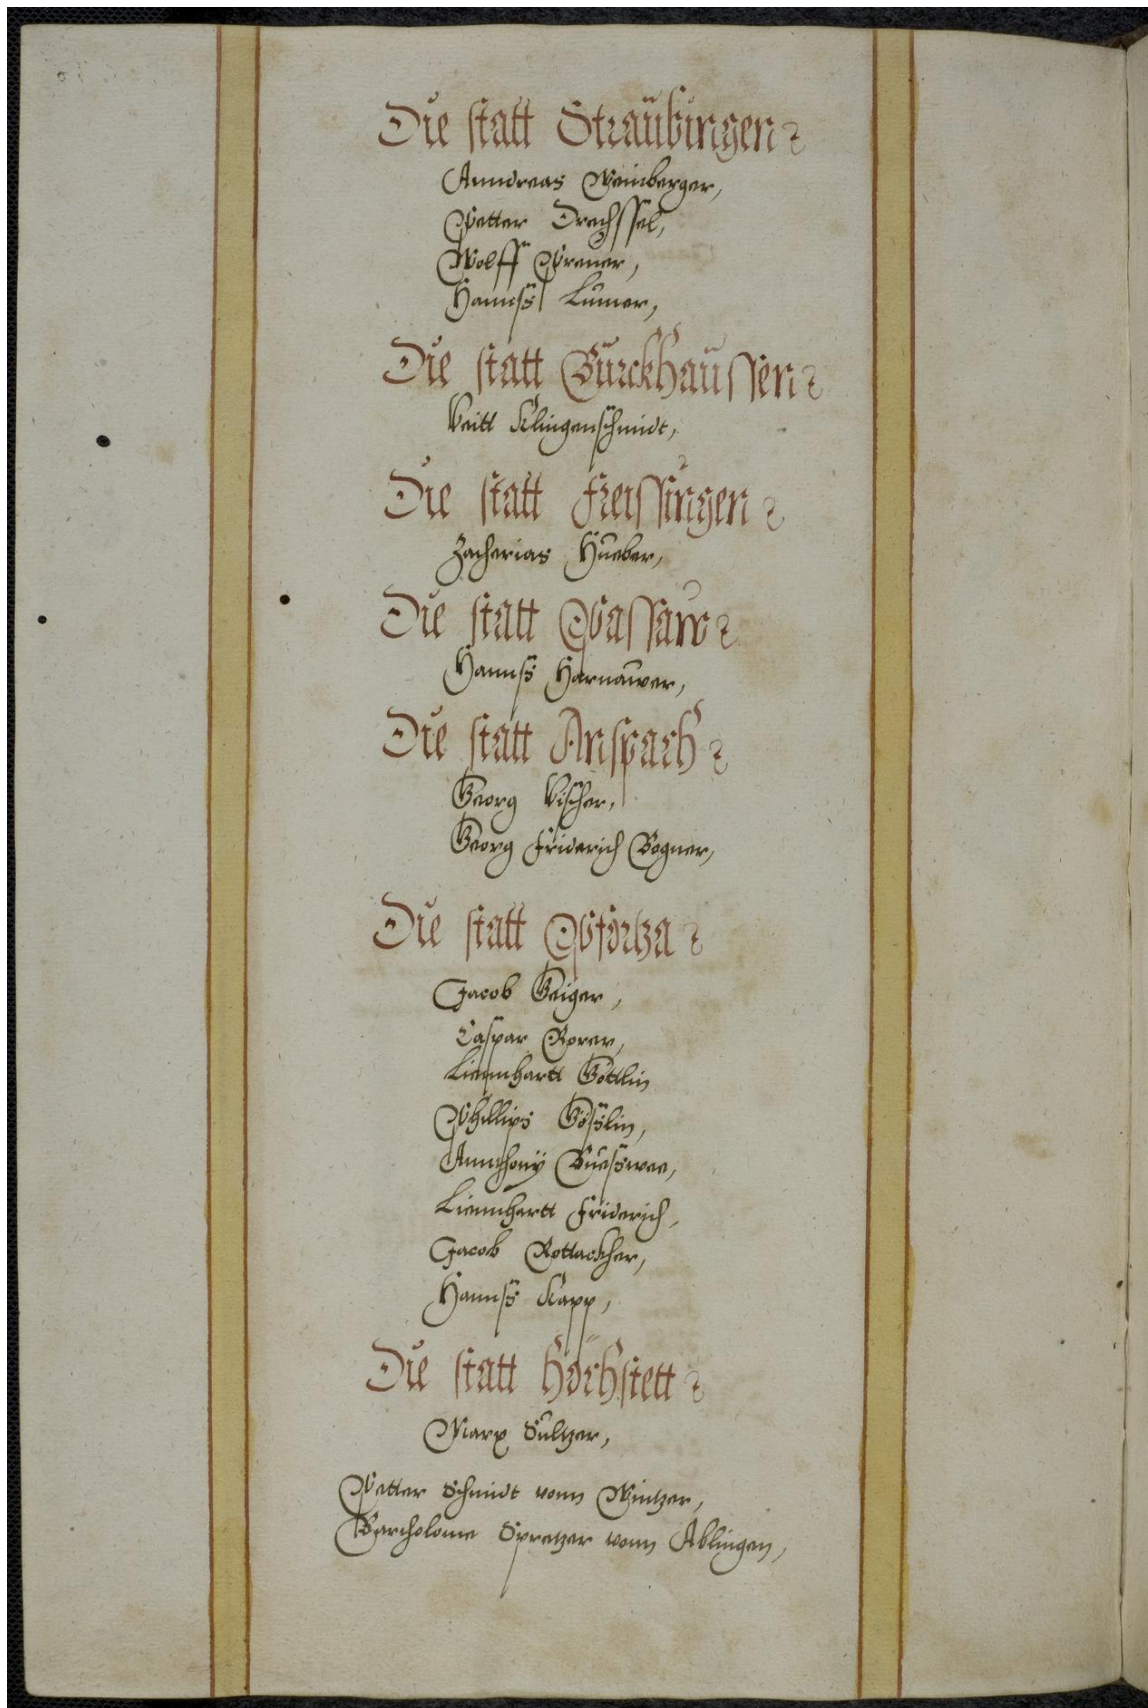 Die statt Straubingen
Anndreas Weinberger,
Petter Drechssel,
Wolff Prener,
Hannsß Lumer,
Die statt Burckhaussen
Veitt Klingenschmidt,
Die statt Freissingen
Zacherias Hueber,
Die statt Passaw
Hannß Harnawer,
Die statt Anspach
Georg Vischer,
Georg Friderich Bogner,
Die statt Pfortza
Jacob Geiger,
Caspar Rorer,
Liennhartt Göttlin
Phillips Gößlin,
Annthony
Liennhartt Friderich,
Jacob Rottackher,
Hannß Kapp,
Die statt Höchstett
Marx Sultzer,
Petter Schmidt vonn Wintzer,
Bartholome Spretzer vonn Ablingen,